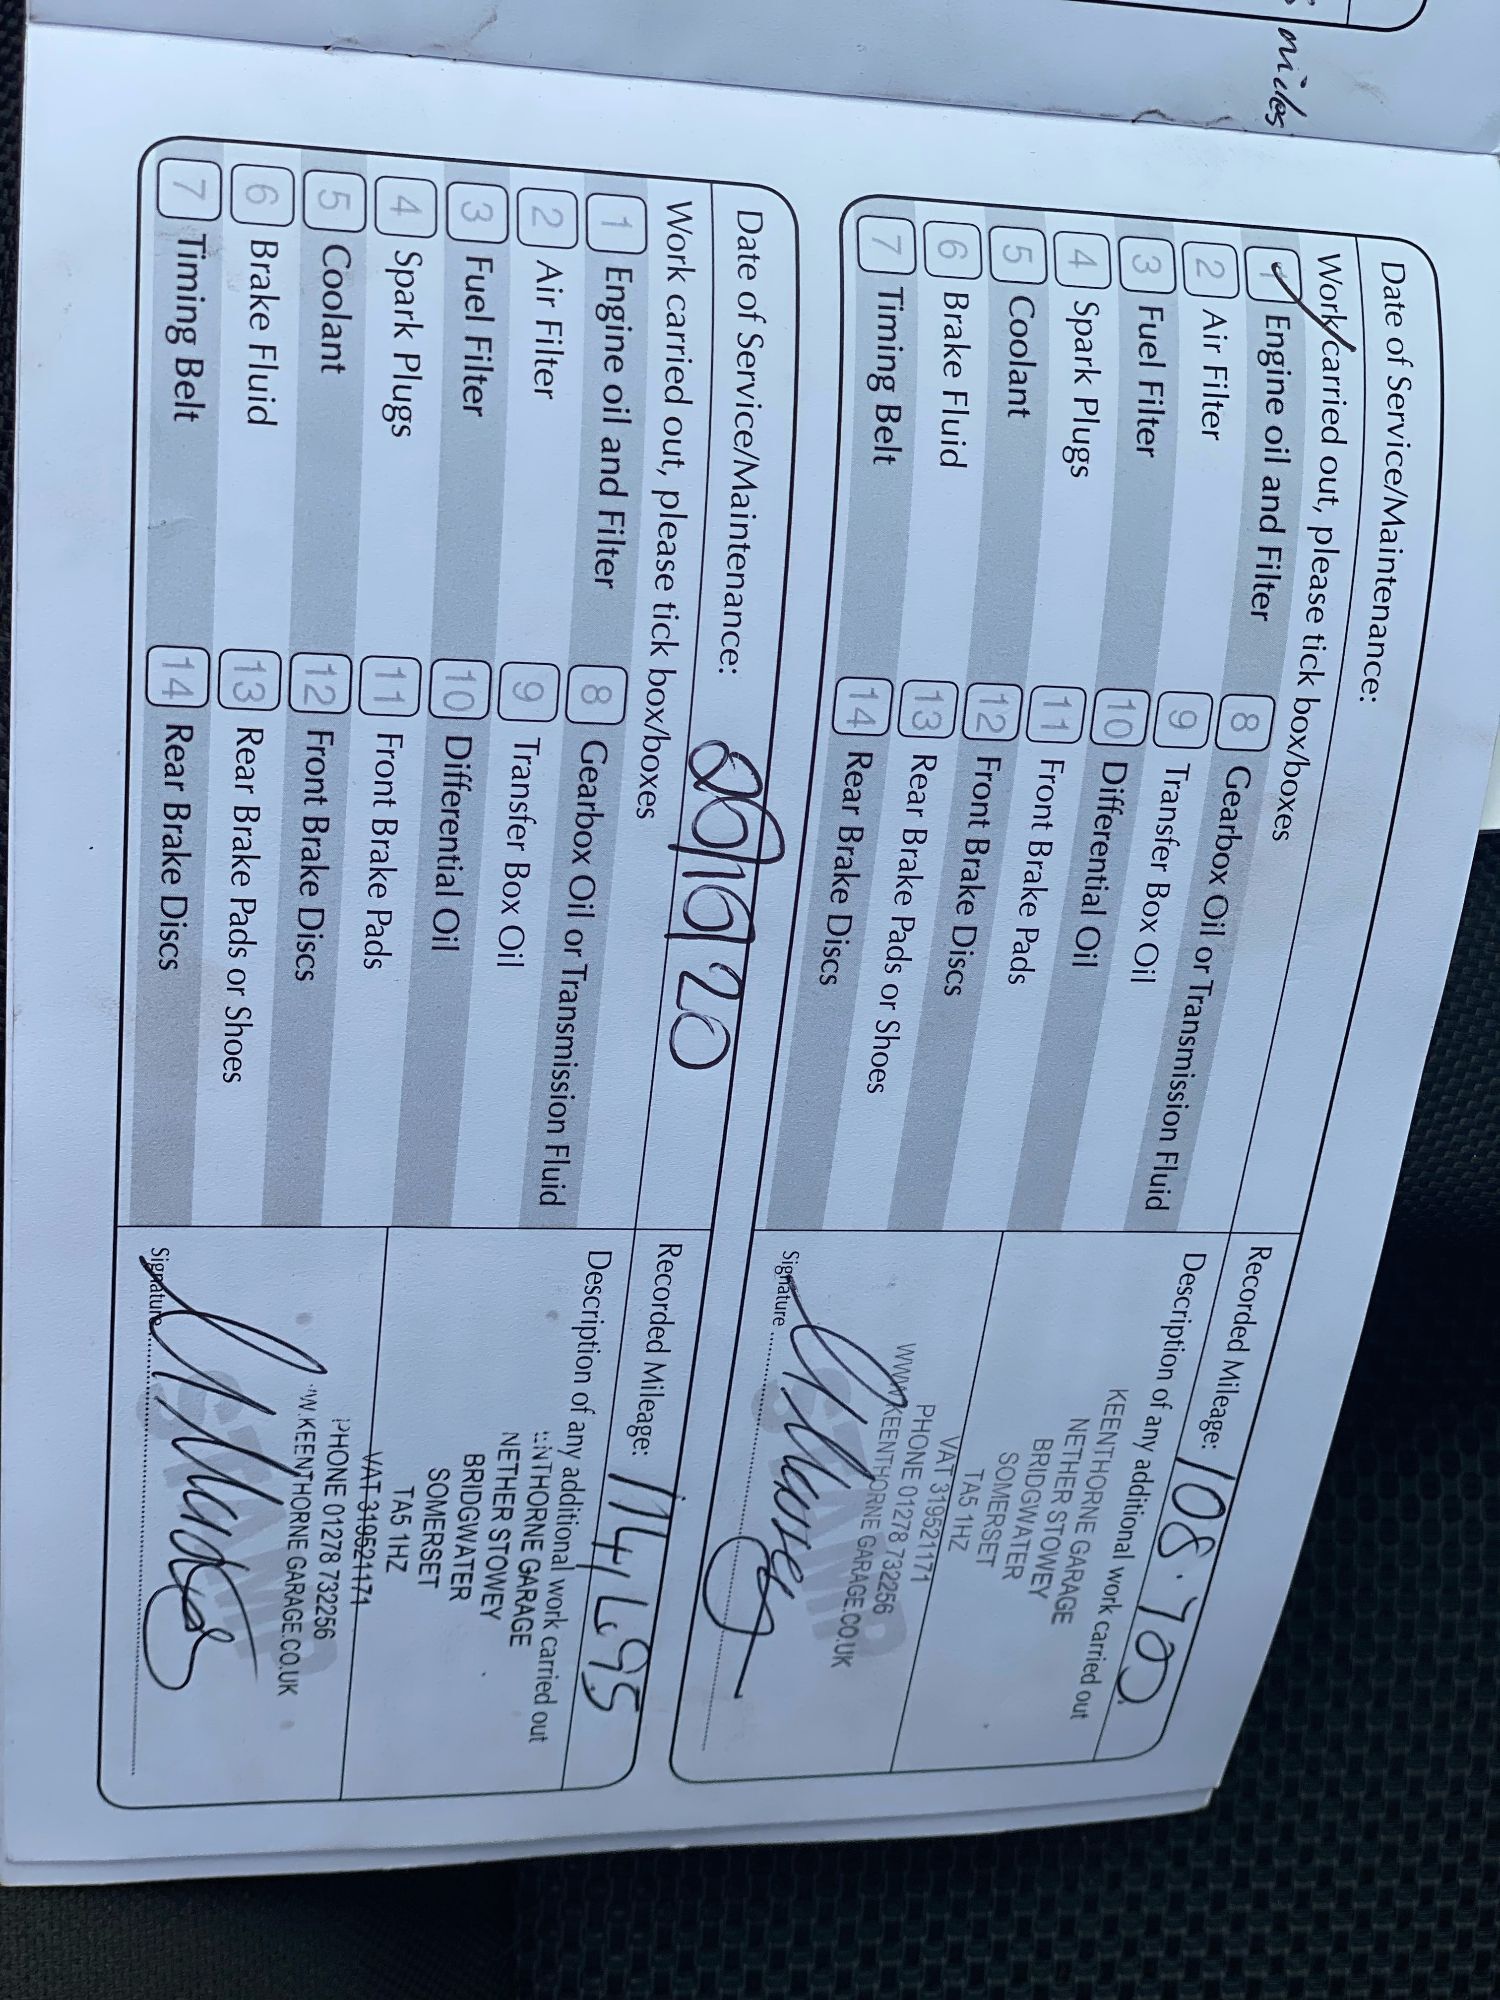 miles
Date of Service/Maintenance:
Recorded Mileage: 108.700
Work carried out, please tick box/boxes
Description of any additional work carried out
1 Engine oil and Filter
8 Gearbox Oil or Transmission Fluid
2 Air Filter
9 Transfer Box Oil
3 Fuel Filter
10 Differential Oil
4 Spark Plugs
11 Front Brake Pads
5 Coolant
12 Front Brake Discs
6 Brake Fluid
13 Rear Brake Pads or Shoes
7 Timing Belt
14 Rear Brake Discs
KEENTHORNE GARAGE
NETHER STOWEY
BRIDGWATER
SOMERSET
TA5 1HZ
VAT 319521171
PHONE 01278 732256
WWW.KEENTHORNE GARAGE.CO.UK
STAMP
Signature
Date of Service/Maintenance: /10/20
Recorded Mileage:
Work carried out, please tick box/boxes
Description of any additional work carried out
1 Engine oil and Filter
8 Gearbox Oil or Transmission Fluid
2 Air Filter
9 Transfer Box Oil
3 Fuel Filter
10 Differential Oil
4 Spark Plugs
11 Front Brake Pads
5 Coolant
12 Front Brake Discs
6 Brake Fluid
13 Rear Brake Pads or Shoes
7 Timing Belt
14 Rear Brake Discs
ENTHORNE GARAGE
NETHER STOWEY
BRIDGWATER
SOMERSET
TA5 1HZ
VAT 319521171
PHONE 01278 732256
W.KEENTHORNE GARAGE.CO.UK
STAMP
Signature